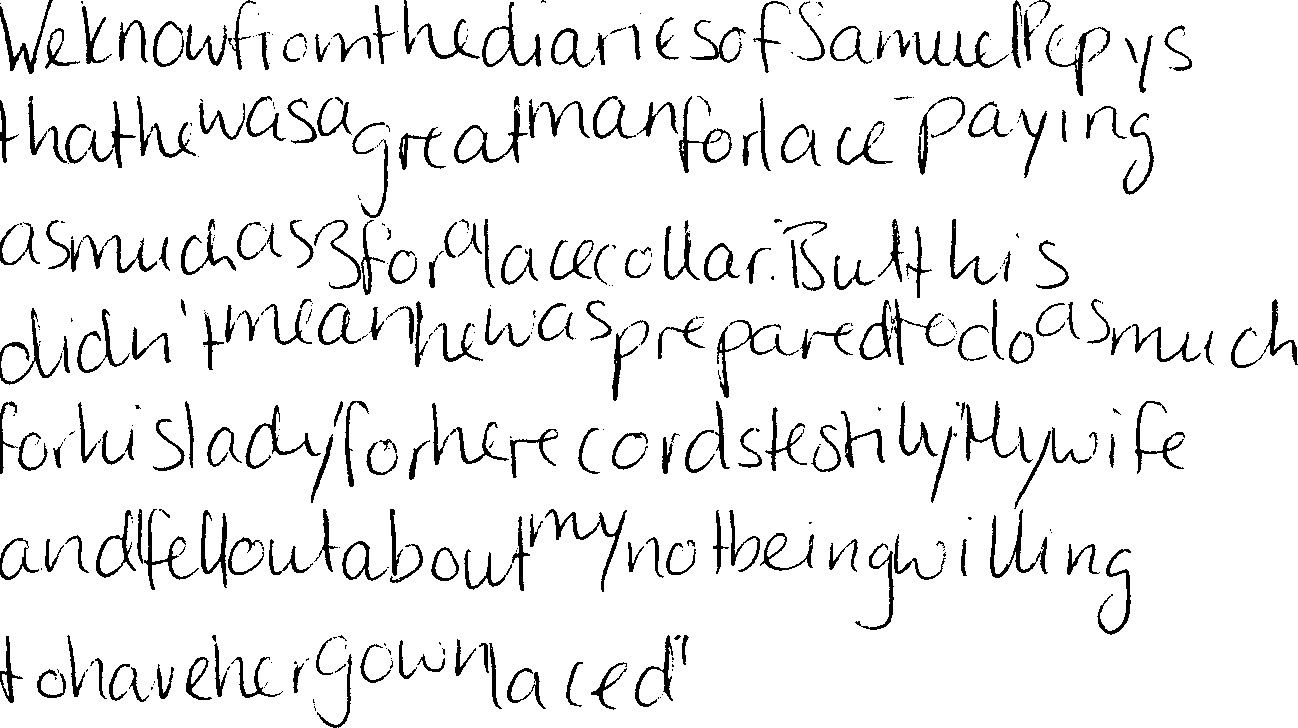 We know from the diaries of Samuel Pepys
that he was a great man for lace - paying
as much as 3 for a lace collar. But this
didn't mean he was prepared to do as much
for his lady for he records testily "My wife
and I fell out about my not being willing
to have her gown laced"